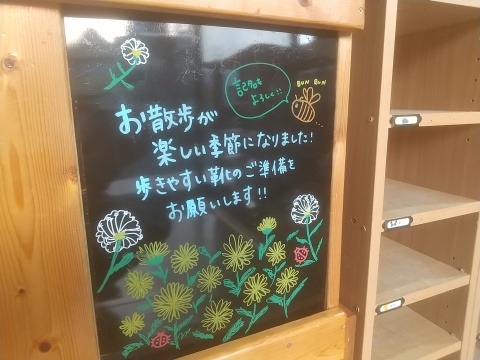 記名を
よろしく!!
BUN BUN
お散歩が
楽しい季節になりました!
歩きやすい靴のご準備を
お願いします!!